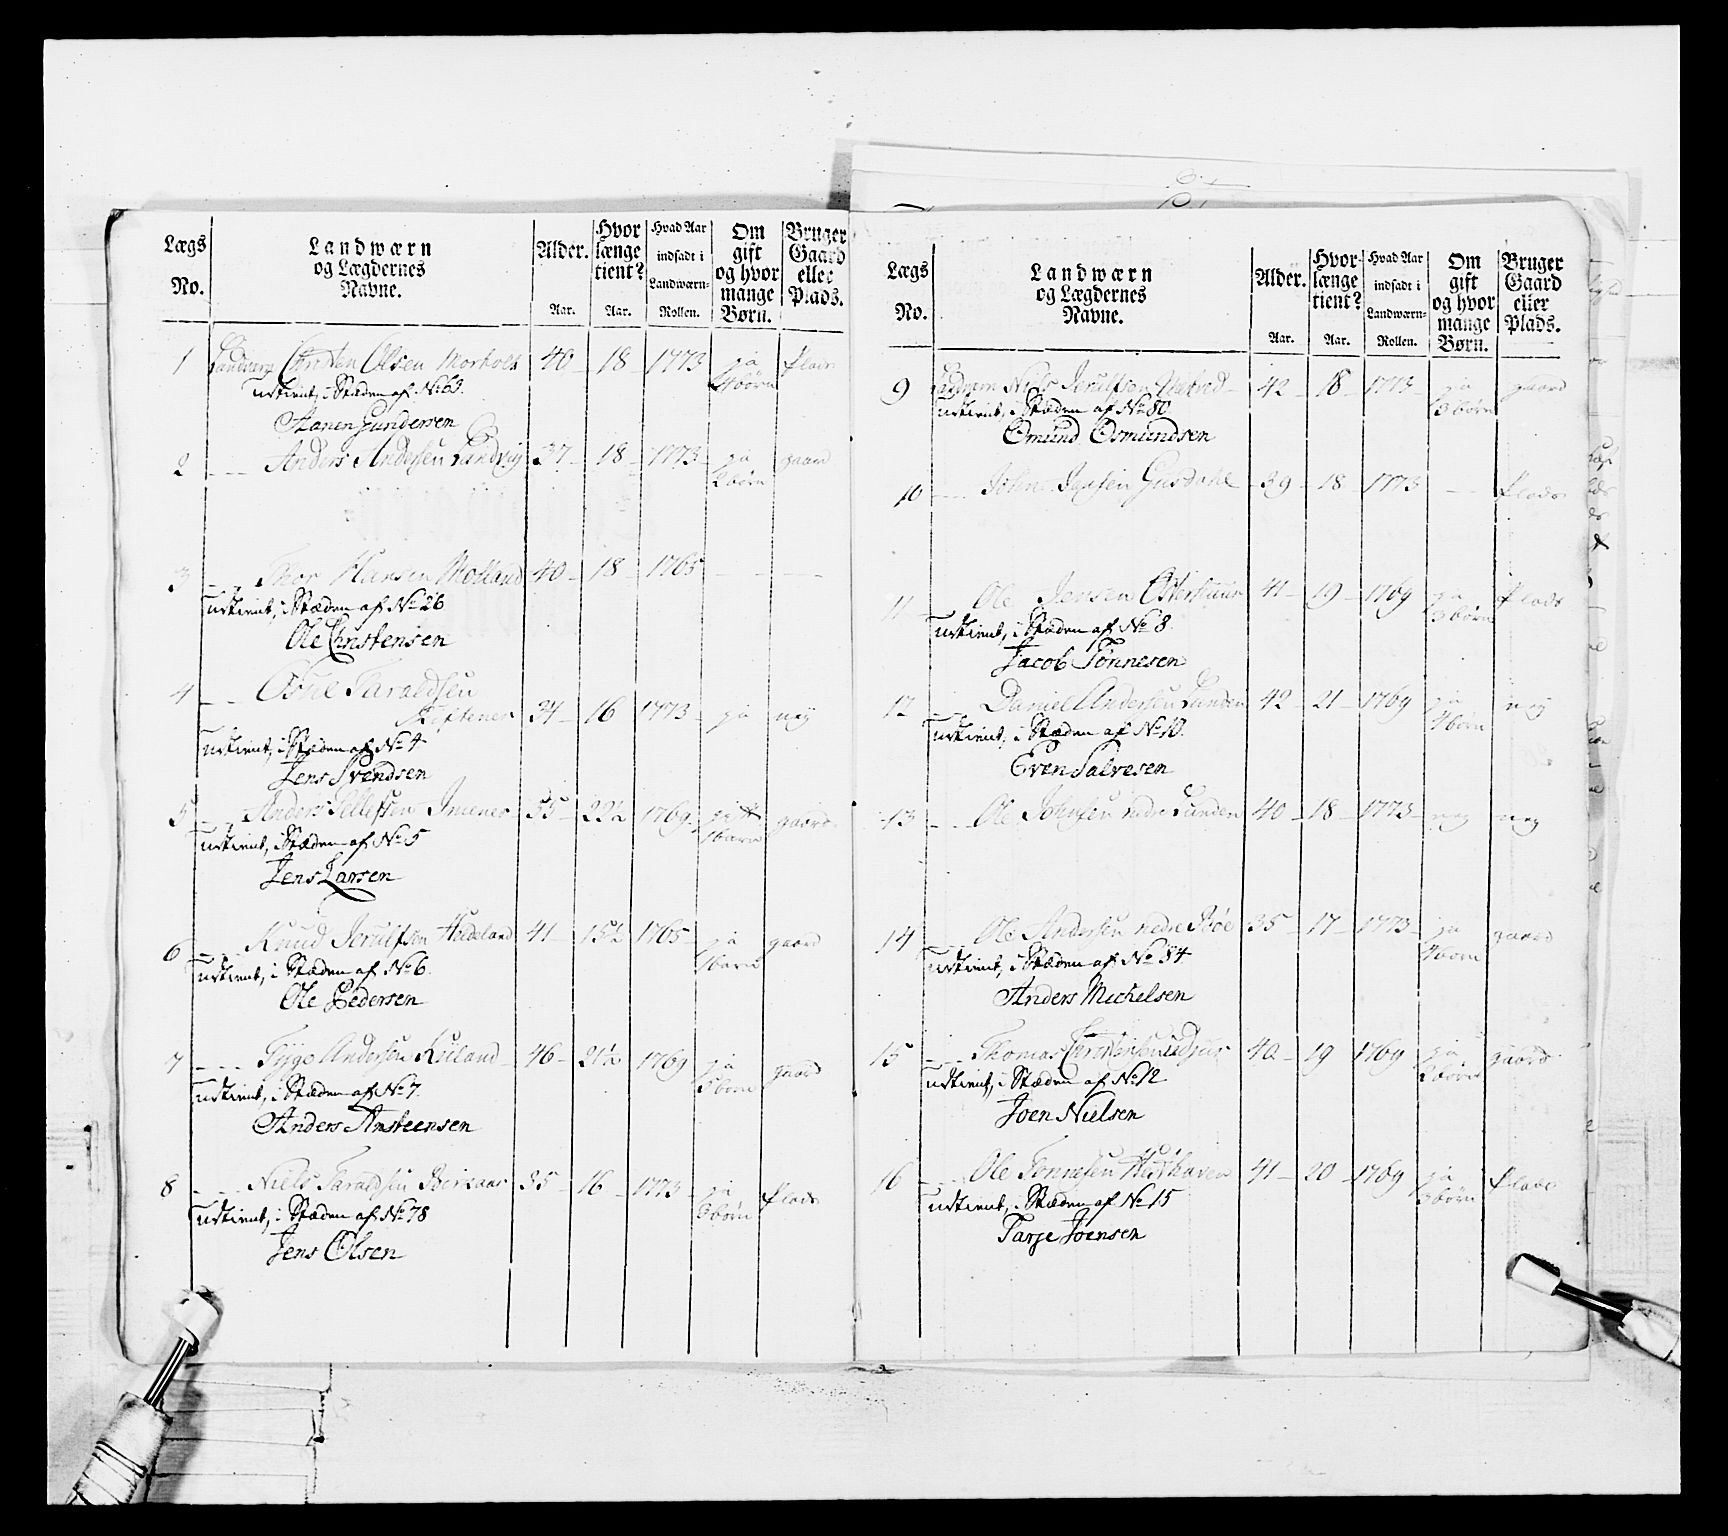 Lægs No. Landwærn og Lægdernes Navne. Alder. Aar. Hvor længe tient? Aar. Hvad Aar indsadt i Landwærn-Rollen. Om gift og hvor mange Børn. Bruger Gaard eller Plads.
1 Christen Olsen 40 18 1773 ja 4 børn plads
udtient, i Stæden af No 63.
Aanen Gundersen
2 Anders Andersen Landvig 37 18 1773 ja 2 børn gaard
3 Thor Hansen Molland 40 18 1765
udtient, i Stæden af No 26
Ole Christensen
4 Taraldsen
34 16 1773 ja nej
udtient, i Stæden af No 4
Jens Svendsen
5 Anders Imenes 55 22½ 1769 gift 1 barn gaard
udtient, i Stæden af No 5
Jens Larsen
6 Knud Jerulfsen 41 15½ 1765 ja 1 barn gaard
udtient, i Stæden af No 6.
Ole Pedersen
7 Tyge Andersen 46 21½ 1769 ja 5 børn gaard
udtient, i Stæden af No 7.
Anders Ansteensen
8 Niels Taraldsen 35 16 1773 ja 3 børn plads
udtient, i Stæden af No 78
Jens Olsen
Lægs No. Landwærn og Lægdernes Navne. Alder. Aar. Hvor længe tient? Aar. Hvad Aar indsadt i Landwærn-Rollen. Om gift og hvor mange Børn. Bruger Gaard eller Plads.
9 Niels Jerulfsen 42 18 1773 ja 3 børn gaard
udtient, i Stæden af No 80
Omund Osmundsen
10 John Jensen 39 18 1773 plads
11 Ole Jensen 41 19 1769 ja 3 børn plads
udtient, i Stæden af No 8.
Jacob Tønnesen
12 Daniel Andersen Lunden 42 21 1769 ja 4 børn nej
udtient, i Stæden af No 10.
Even Salvesen
13 Ole Johnsen nedre Lunden 40 18 1773 nej nej
14 Ole Andersen nedre Bøe 35 17 1773 ja 4 børn gaard
udtient, i Stæden af No 54
Anders Michelsen
15 Thomas Christensen 40 19 1769 ja 2 børn gaard
udtient, i Stæden af No 12
Joen Nielsen
16 Ole Tønnesen 41 20 1769 ja 3 børn plads
udtient, i Stæden af No 15
Tarje Joensen